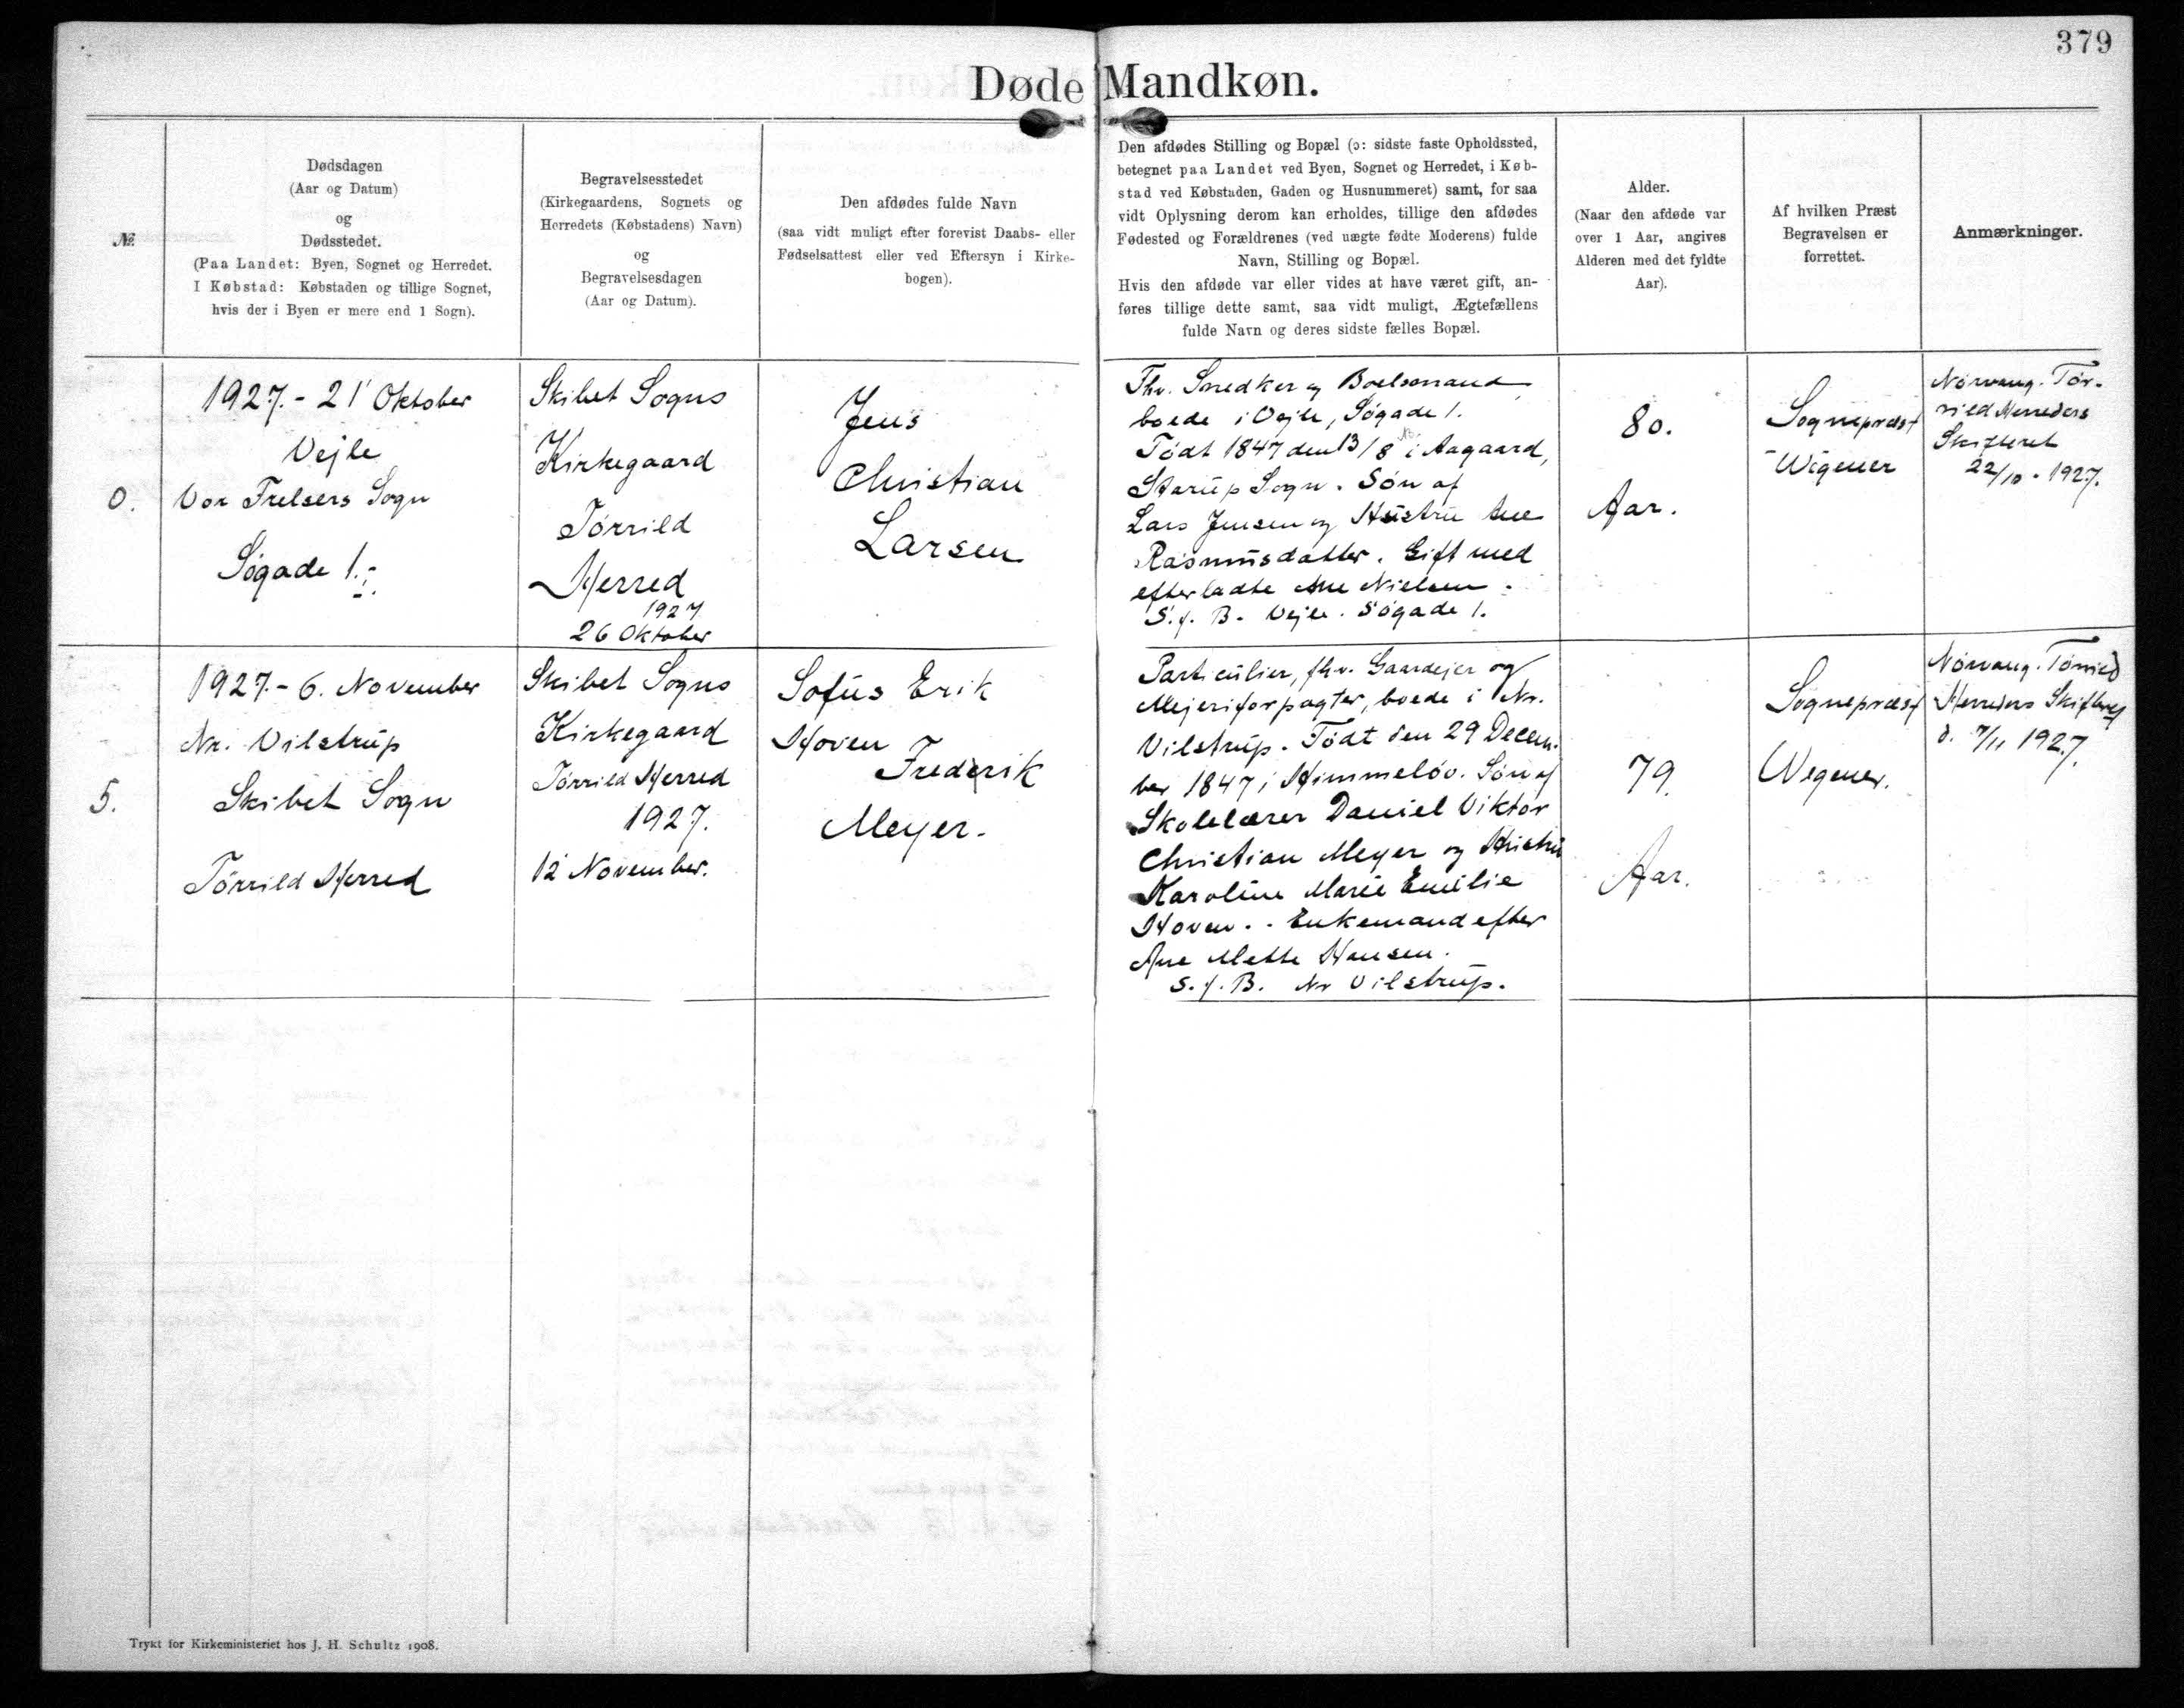 379
Døde Mandkøn.
№
Dødsdagen
(Aar og Datum)
og
Dødsstedet.
(Paa Landet: Byen, Sognet og Herredet.
I Købstad: Købstaden og tillige Sognet,
hvis der i Byen er mere end 1 Sogn).
Begravelsesstedet
(Kirkegaardens, Sognets og
Herredets (Købstadens) Navn)
og
Begravelsesdagen
(Aar og Datum).
Den afdødes fulde Navn
(saa vidt muligt efter forevist Daabs- eller
Fødselsattest eller ved Eftersyn i Kirke-
bogen).
Den afdødes Stilling og Bopæl (ɔ: sidste faste Opholdssted,
betegnet paa Landet ved Byen, Sognet og Herredet, i Køb-
stad ved Købstaden, Gaden og Husnummeret) samt, for saa
vidt Oplysning derom kan erholdes, tillige den afdødes
Fødested og Forældrenes (ved uægte fødte Moderens) fulde
Navn, Stilling og Bopæl.
Hvis den afdøde var eller vides at have været gift, an-
føres tillige dette samt, saa vidt muligt, Ægtefællens
fulde Navn og deres sidste fælles Bopæl.
Alder.
(Naar den afdøde var
over 1 Aar, angives
Alderen med det fyldte
Aar).
Af hvilken Præst
Begravelsen er
forrettet.
Anmærkninger.
0.
1927.- 21 Oktober
Vejle
Vor Frelsers Sogn
Søgade 1.
Skibet Sogns
Kirkegaard
Tørrild
Herred
1927
26 Oktober
Jens
Christian
Larsen
Fhv. Snedker og Boelsmand
boede i Vejle, Søgade 1.
Født 1847 den 13/8 i Aagaard,
Starup Sogn. Søn af
Lars Jensen og Hustru Ane
Rasmusdatter. Gift med
efterladte Ane Nielsen.
S. f. B. Vejle. Søgade 1.
80.
Aar.
Sognepræst
Wegener
Nørvang. Tør-
rild Herreders
Skifteret
22/10 - 1927.
5.
1927.- 6. November
Nr. Vilstrup
Skibet Sogn
Tørrild Herred
Skibet Sogns
Kirkegaard
Tørrild Herred
1927.
12 November.
Sofus Erik
Hoven
Frederik
Meyer.
Particulier, fhv. Gaardejer og
Mejeriforpagter, boede i Nr.
Vilstrup. Født den 29 Decem-
ber 1847 i Himmeløv. Søn af
Skolelærer Daniel Viktor
Christian Meyer og Hustru
Karoline Marie Emilie
Hoven. - Enkemand efter
Ane Mette Hansen.
S. f. B. Nr Vilstrup.
79.
Aar.
Sognepræst
Wegener.
Nørvang. Tørrild
Herreders Skifteret
d. 7/11 1927.
Trykt for Kirkeministeriet hos J. H. Schultz 1908.